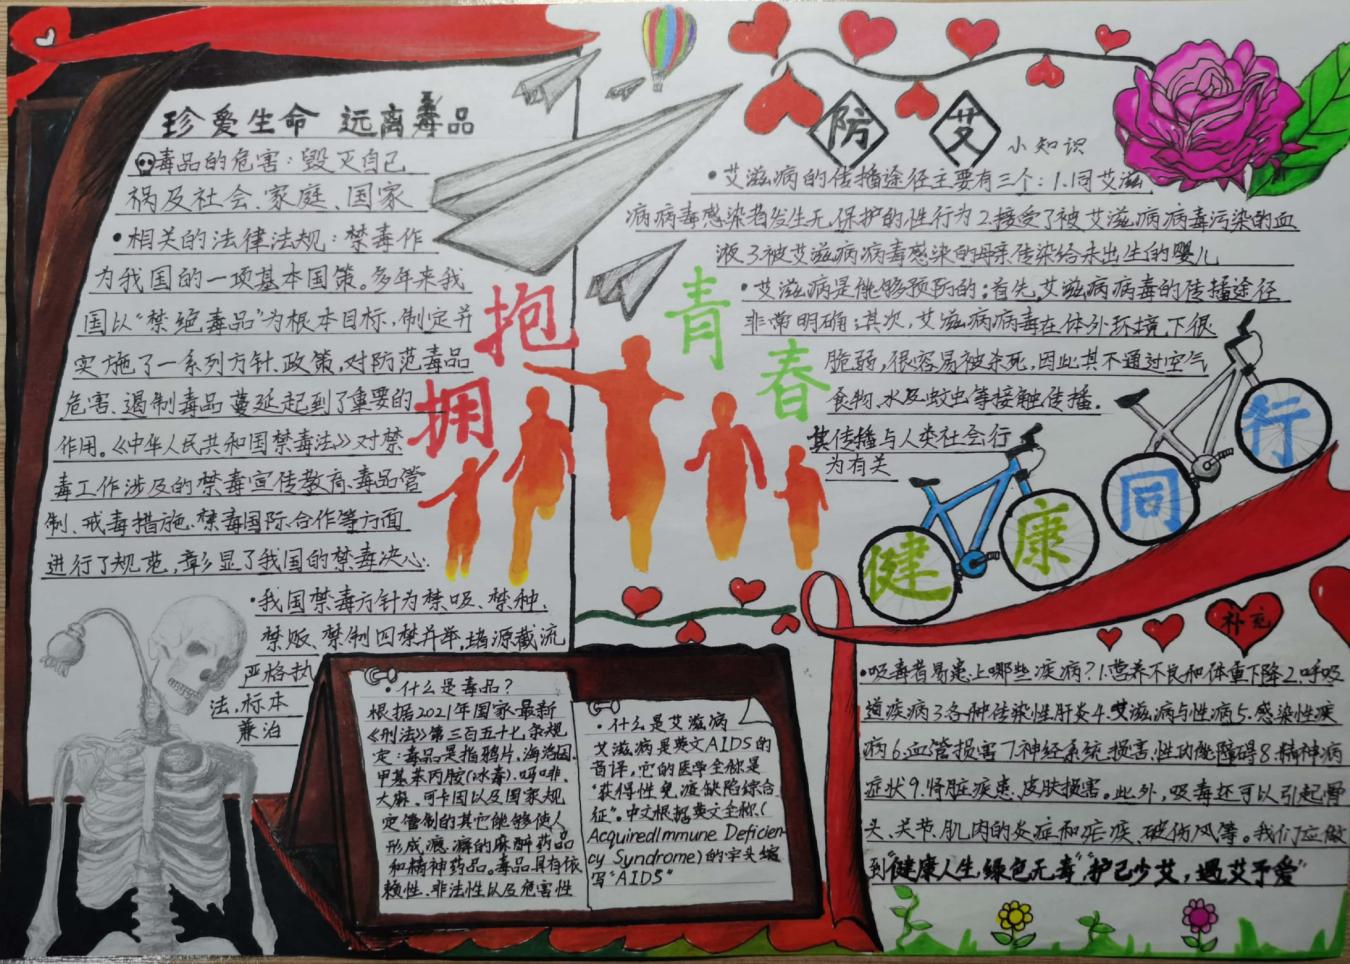 珍爱生命 远离毒品
毒品的危害：毁灭自己
祸及社会、家庭、国家
·相关的法律法规：禁毒作
为我国的一项基本国策。多年来我
国以“禁绝毒品”为根本目标，制定并
实施了一系列方针、政策，对防范毒品
危害、遏制毒品蔓延起到了重要的
作用。《中华人民共和国禁毒法》对禁
毒工作涉及的禁毒宣传教育、毒品管
制、戒毒措施、禁毒国际合作等方面
进行了规范，彰显了我国的禁毒决心.
·我国禁毒方针为禁吸、禁种、
禁贩、禁制四禁并举，堵源截流
严格执
法，标本
兼治
拥抱
青春
防 艾
小知识
·艾滋病的传播途径主要有三个：1.同艾滋
病病毒感染者发生无保护的性行为2.接受了被艾滋病病毒污染的血
液3.被艾滋病病毒感染的母亲传染给未出生的婴儿
·艾滋病是能够预防的：首先，艾滋病病毒的传播途径
非常明确；其次，艾滋病病毒在体外环境下很
脆弱，很容易被杀死，因此其不通过空气
食物、水及蚊虫等接触传播.
其传播与人类社会行
为有关
健康
同行
·什么是毒品？
根据2021年国家最新
《刑法》第三百五十七条规
定：毒品是指鸦片、海洛因、
甲基苯丙胺(冰毒)、吗啡、
大麻、可卡因以及国家规
定管制的其它能够使人
形成瘾癖的麻醉药品
和精神药品。毒品具有依
赖性、非法性以及危害性
·什么是艾滋病
艾滋病是英文AIDS的
音译，它的医学全称是
“获得性免疫缺陷综合
征”。中文根据英文全称(
AcquiredImmune Deficien-
cy Syndrome)的字头缩
写“AIDS”
补充
·吸毒者易患上哪些疾病？1.营养不良和体重下降2.呼吸
道疾病3.各种传染性肝炎4.艾滋病与性病5.感染性疾
病6.血管损害7.神经系统损害，性功能障碍8.精神病
症状9.肾脏疾患、皮肤损害。此外，吸毒还可以引起骨
头、关节、肌肉的炎症和疟疾、破伤风等。我们应做
到“健康人生，绿色无毒”“护己少艾，遇艾予爱”